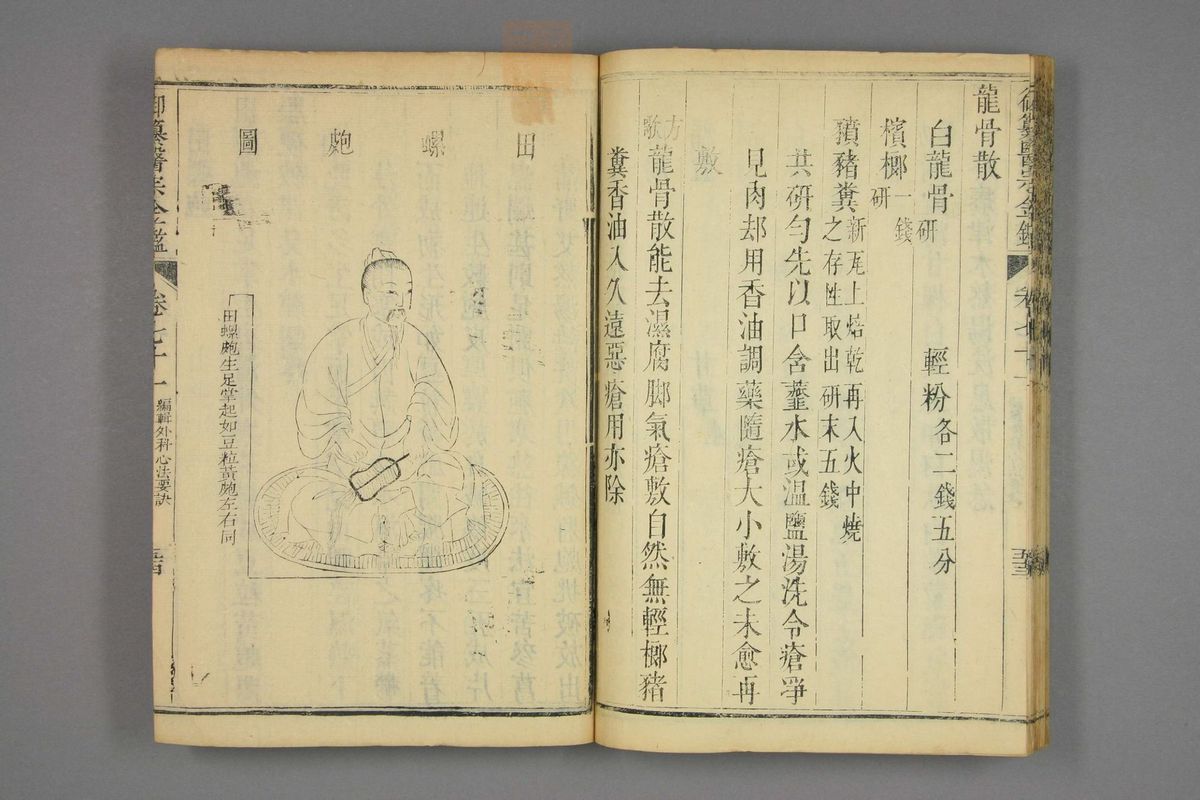 御纂醫宗金鑑 卷七十一
五三
龍骨散
白龍骨研 輕粉各二錢五分
檳榔一錢研
豶豬糞新瓦上焙乾再入火中燒之存性取出研末五錢
共研勻先以口含虀水或溫鹽湯洗令瘡淨
見肉却用香油調藥隨瘡大小敷之未愈再
敷
方歌 龍骨散能去濕腐脚氣瘡敷自然無輕榔豬
糞香油入久遠惡瘡用亦除
田螺皰圖
田螺皰生足掌起如豆粒黃皰左右同
御纂醫宗金鑑 卷七十一 編輯外科心法要訣
五四